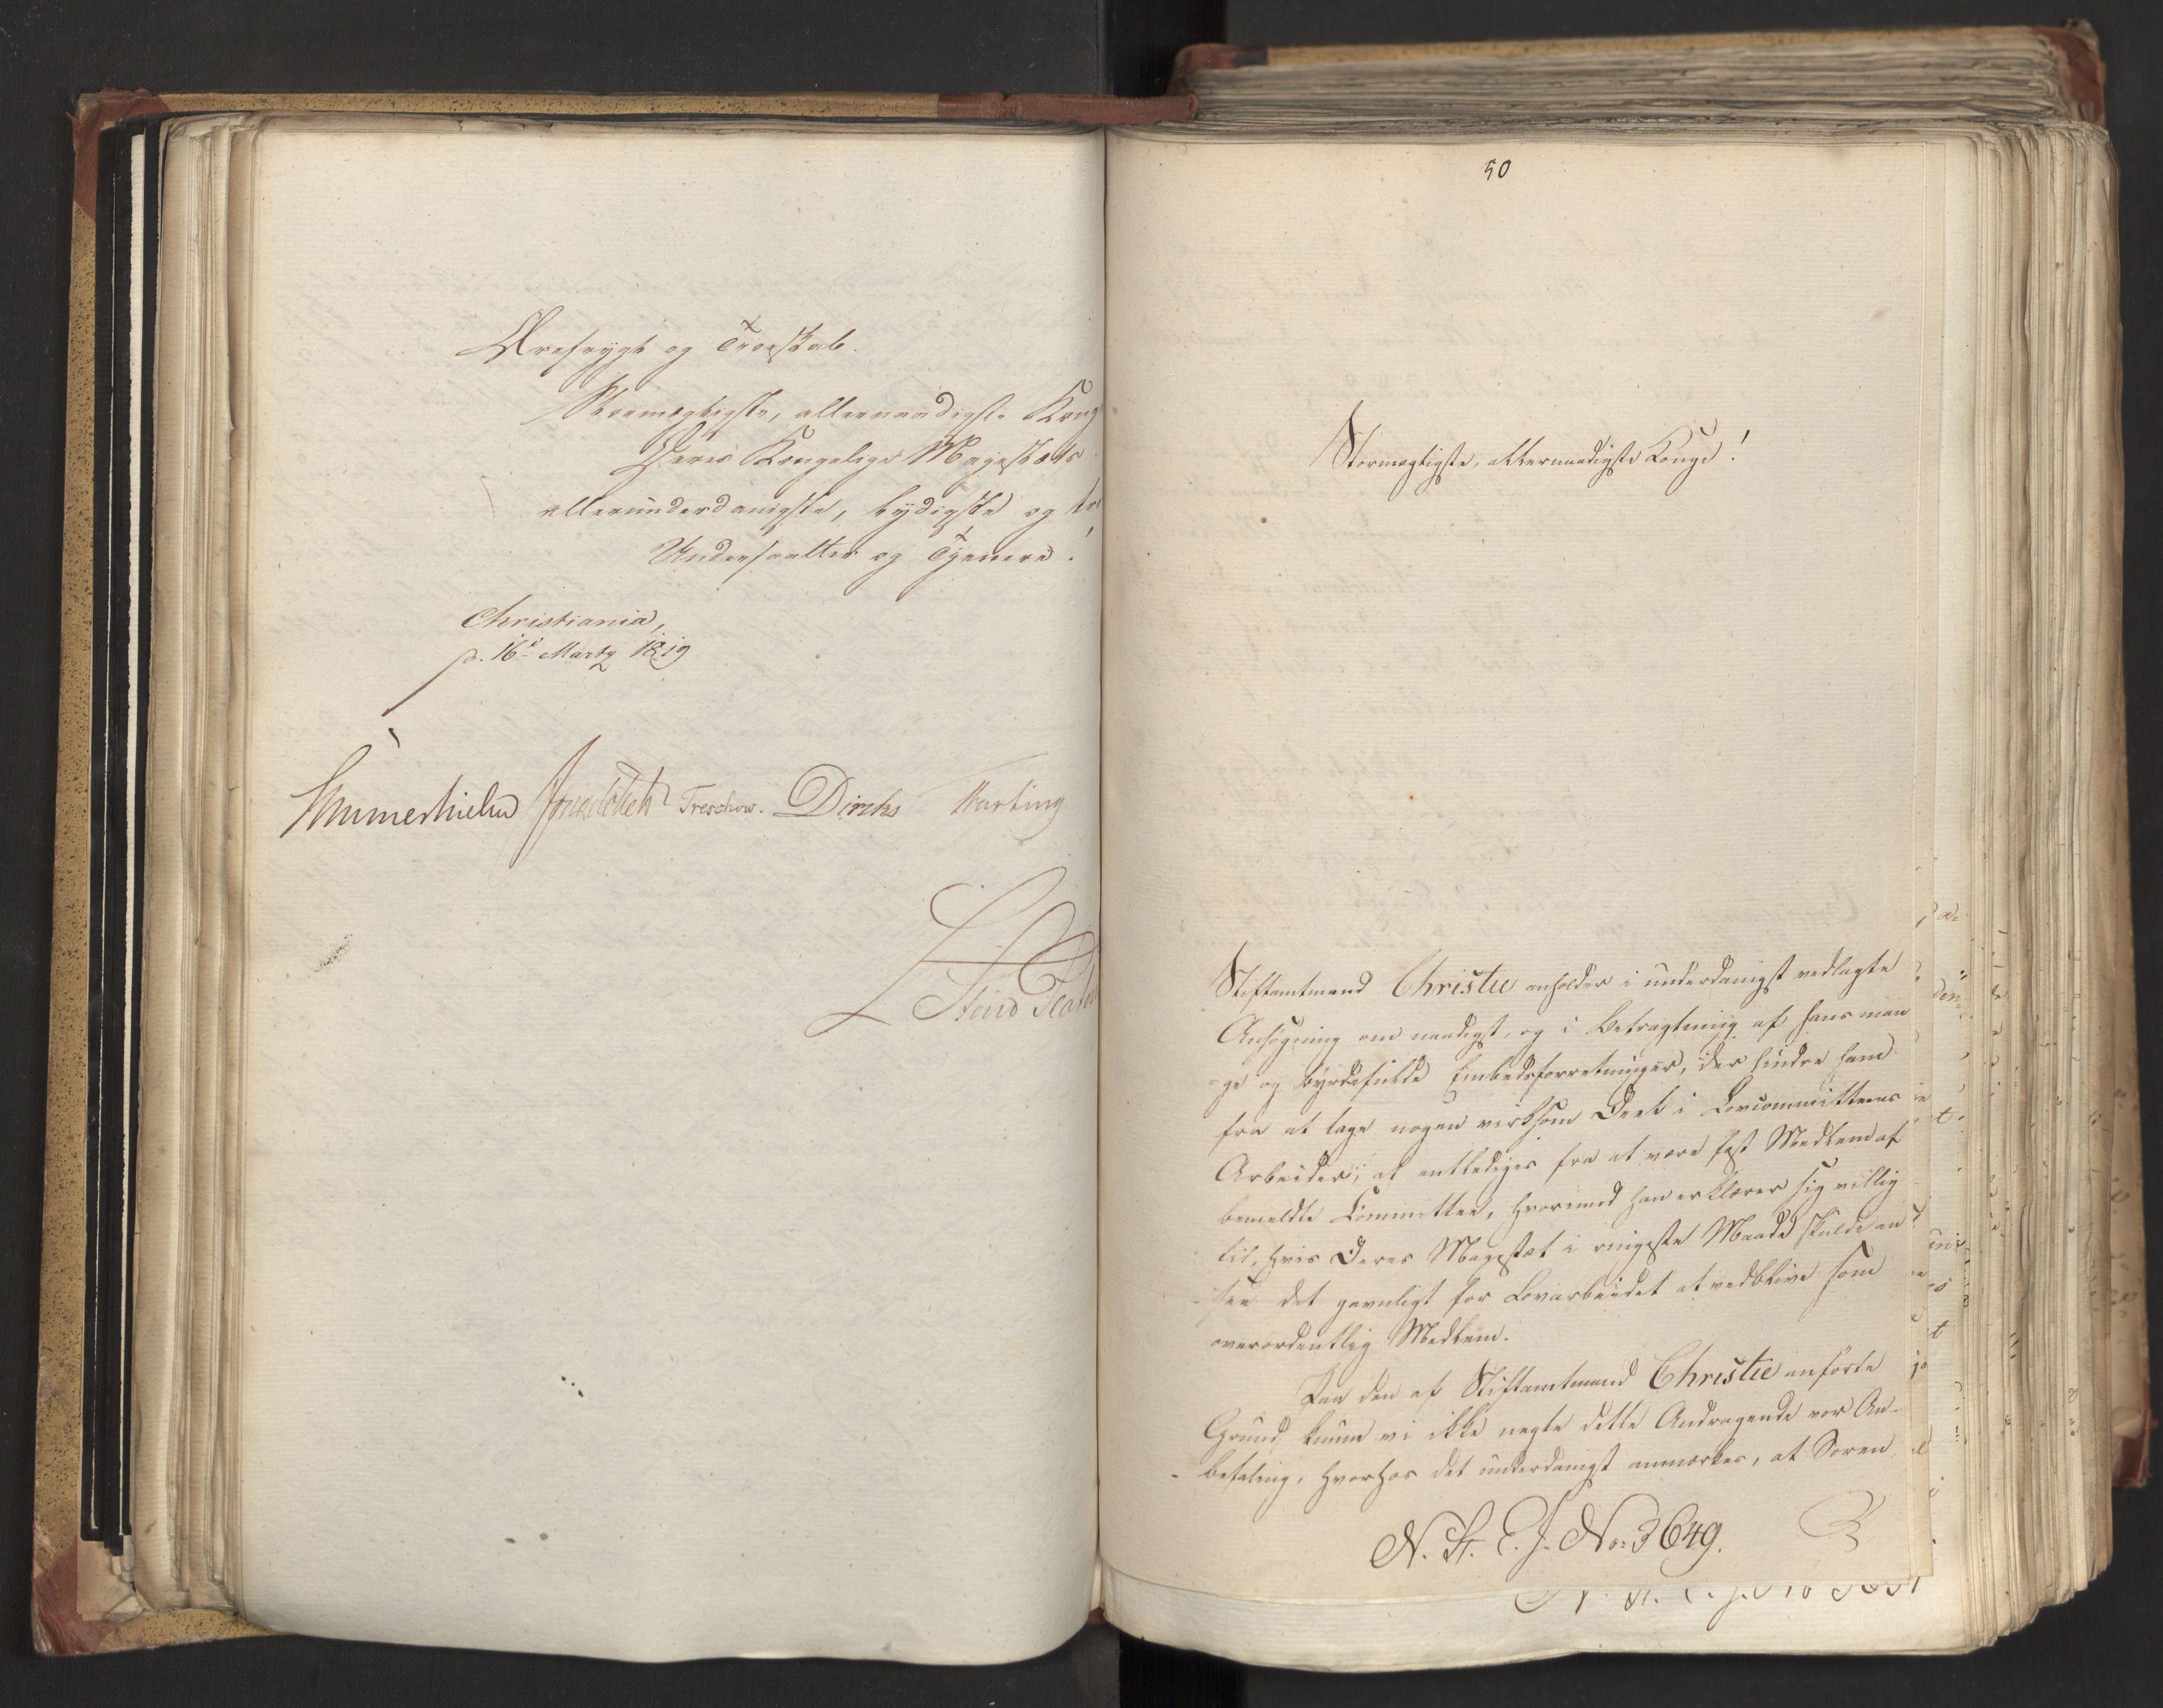 Ærefrygt og Troeskab.
Stormægtigste, allernaadigste Kong
Deres Kongelige Majestæts
allerunderdanigste, lydigste og tro
Undersaatter og Tjenere!
Christiania,
d. 16 Marty 1819
Sommerhielm Treschow. Diriks
50
Stormægtigste, allernaadigste Konge!
Stiftamtmand Christie anholder i underdanigst vedlagte
Ansøgning om naadigst, og i Betragtning af hans man
-ge og byrdefulde Embedsforretninger, der hindre ham
fra at tage nogen virksom Deel i Lovcommitteens
Arbeider, at entlediges fra at være fast Medlem af
bemeldte Committee, hvorimod han erklærer sig villig
til, hvis Deres Majestæt i ringeste Maade skulde an
-see det gavnligt for Lovarbeidet at vedblive som
overordentlig Medlem.
Paa den af Stiftamtmand Christie anførte
Grund, kunne vi ikke negte dette Andragende vor An-
-befaling, hvorhos det underdanigst anmærkes, at Soren
N. St. E. J. No 3649.